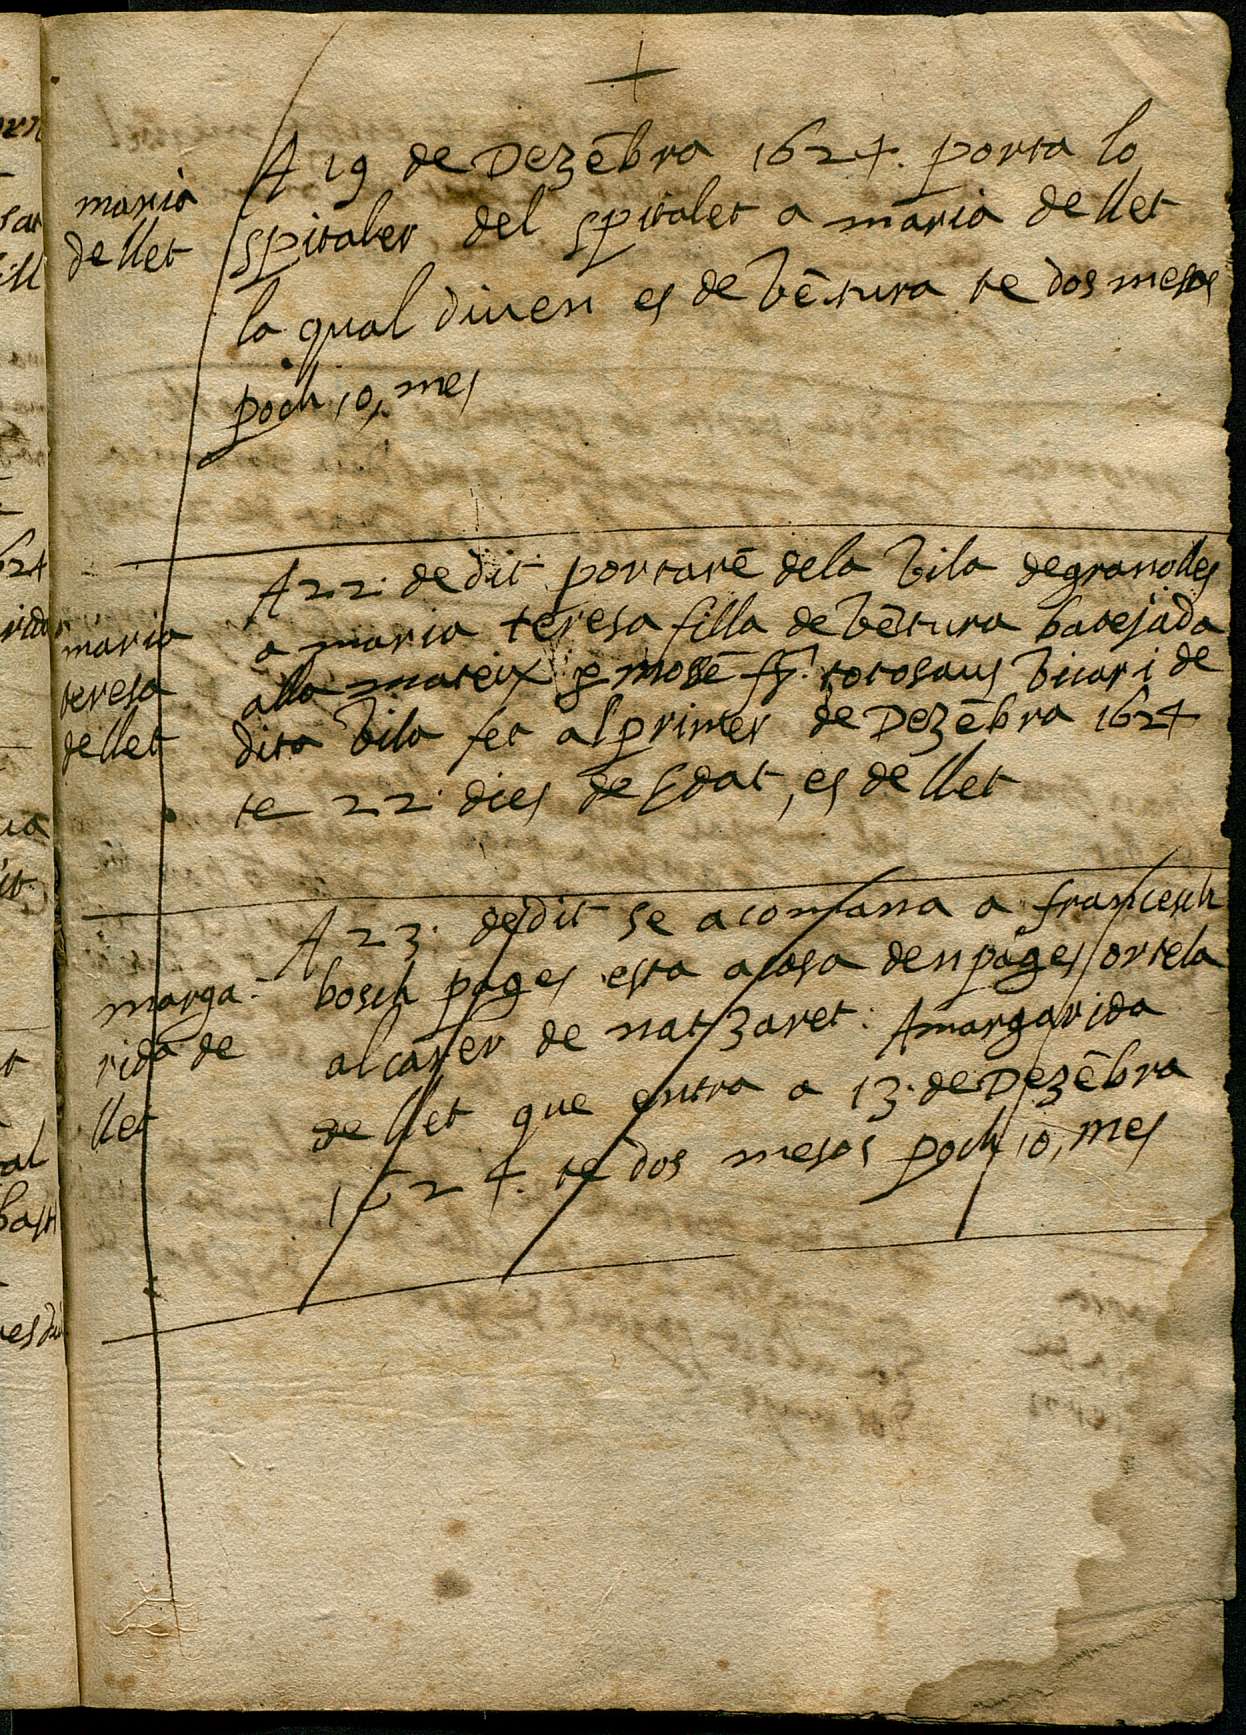 maria
de llet
A 19 de Dezēbra 1624. porta lo
spitaler del spitalet a maria de llet
la qual diuen es de Vētura te dos mesos
poch ,o, mes
maria
teresa
de llet
A 22. de dit portarē de la Vila de granolles
a maria teresa filla de Vētura batejada
alla mateix p mossē fr. totosaus Vicari de
dita Vila fet al primer de Dezēbra 1624
te 22. dies de Edat, es de llet
marga-
rida de
llet
A 23. de dit se acomana a francesch
bosch pages esta a casa den pages ortela
al carrer de natzaret. A margarida
de llet que entra a 13. de Dezēbra
1624. te dos mesos poch ,o, mes